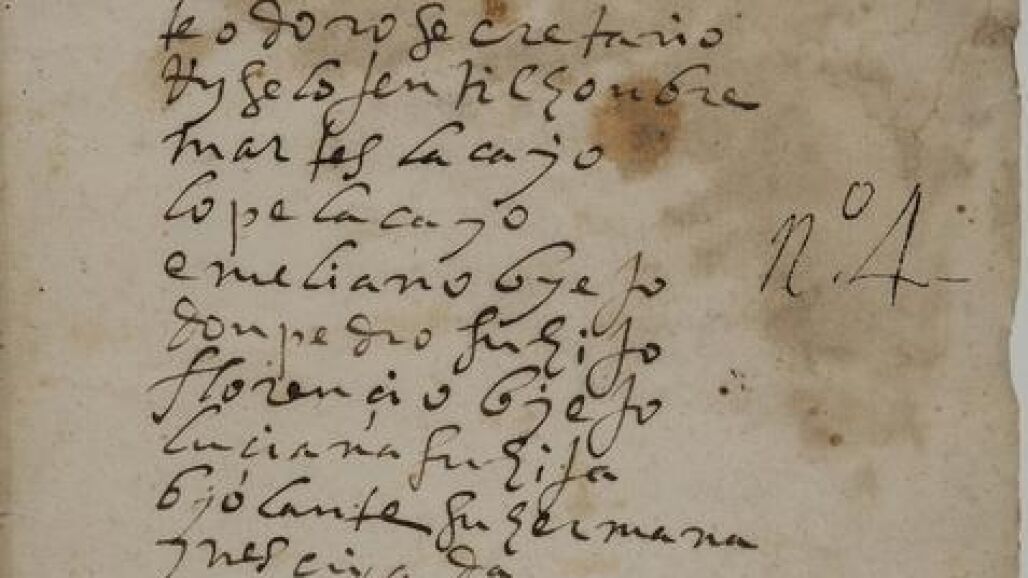 teodoro secretario
tyselo jentilhonbre
martes lacayo
lope lacayo
emeliano byejo
don pedro su hijo
florençio byejo
luçiana su hija
byolante su hermana
ynes criada
nº. 4